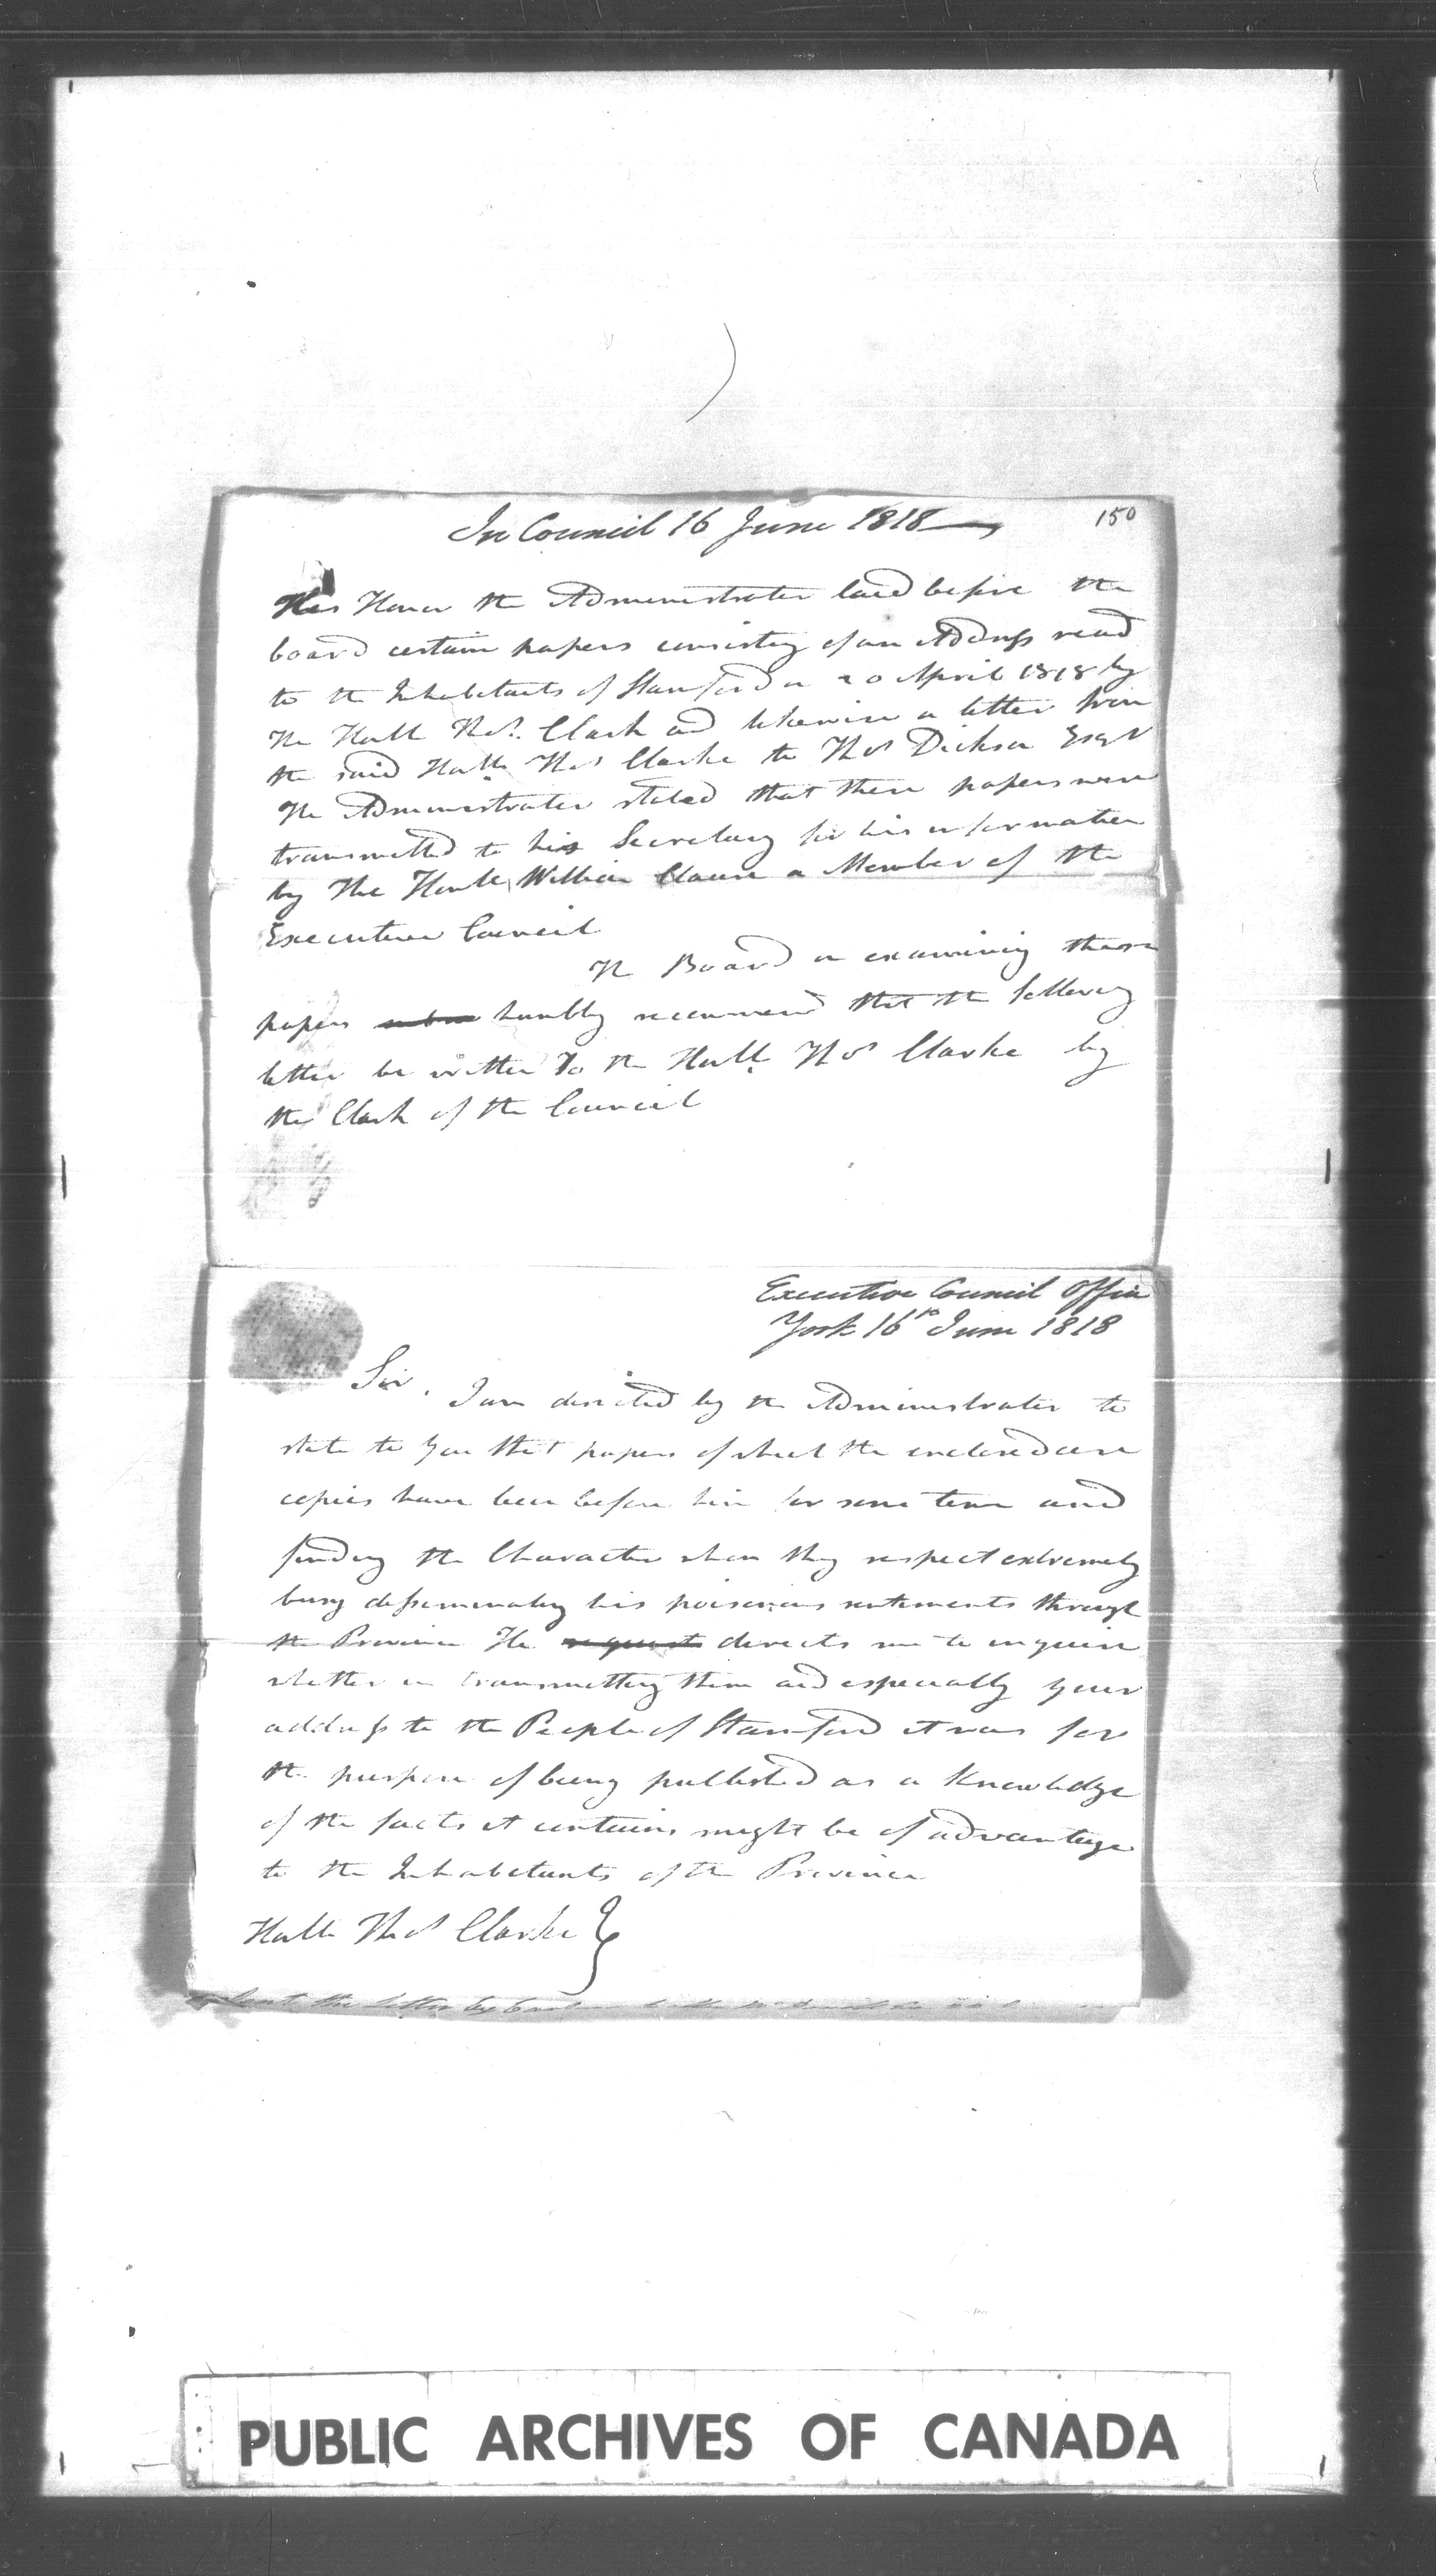 150
In Council 16 June 1818
His Honor the Administrator laid before the
board certain papers consisting of an Address read
to the Inhabitants of Stamford on 20 April 1818 by
The Honble Thos. Clark and likewise a letter from
the said Honble Thos Clarke to Thos Dickson Esqr
The Administrator stated that these papers were
transmitted to his Secretary for his information
by The Honble William Clause a Member of the
Executive Council
The Board on examining these
papers humbly recommend that the following
letter be written To the Honble Thos Clarke by
the Clerk of the Council
Executive Council Office
York 16th June 1818
Sir,
I am directed by the Administrator to
state to you that papers of which the enclosed are
copies have been before him for some time and
finding the Character whom they respect extremely
busy disseminating his poisonous sentiments through
the Province He request directs me to inquire
whether in transmitting them and especially your
address to the People of Stamford it was for
the purpose of being published as a Knowledge
of the facts it contains might be of advantage
to the Inhabitants of the Province
Honble Thos Clarke
sent the letter by
PUBLIC ARCHIVES OF CANADA